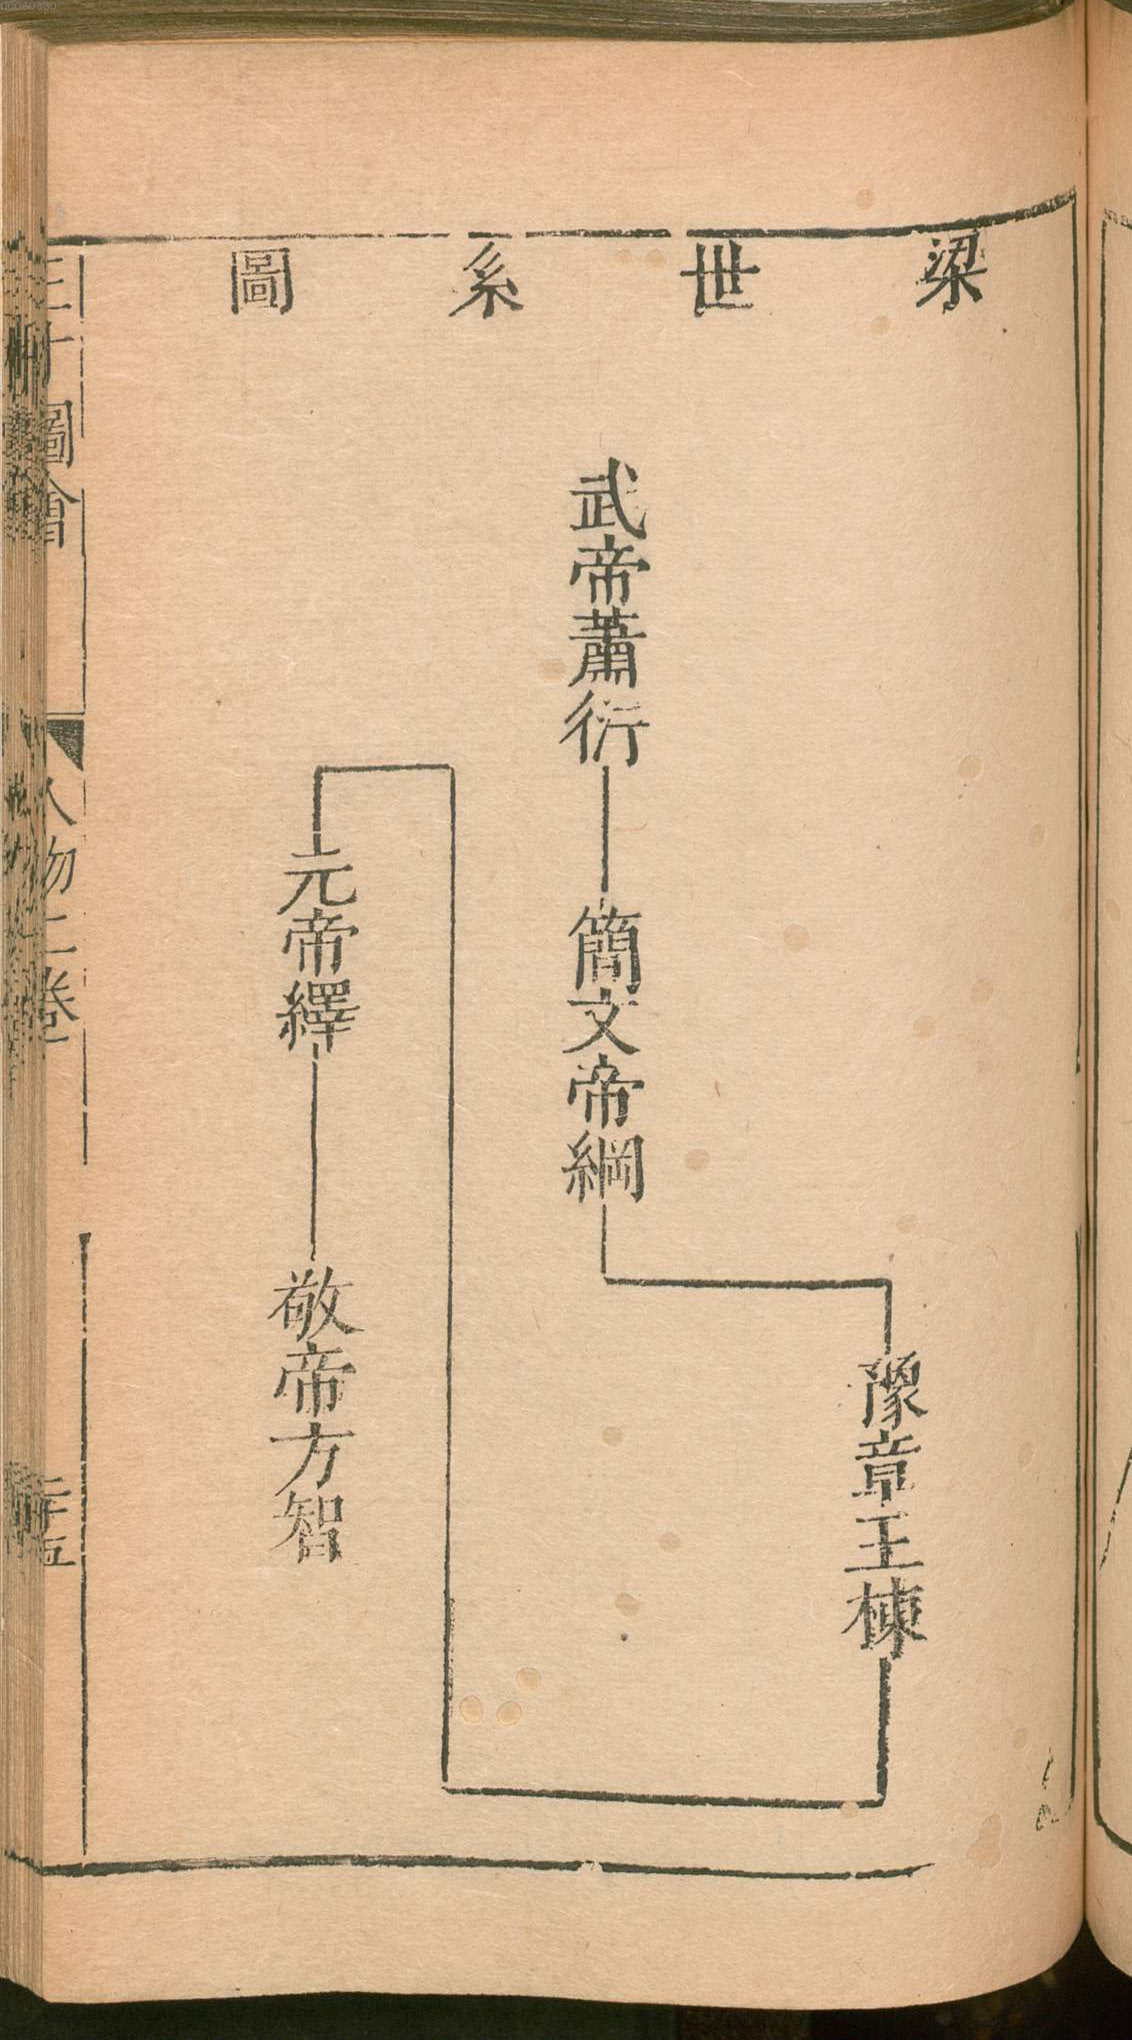 梁世系圖
武帝蕭衍
簡文帝綱
豫章王棟
元帝繹
敬帝方智
三才圖會
人物二卷
二十五